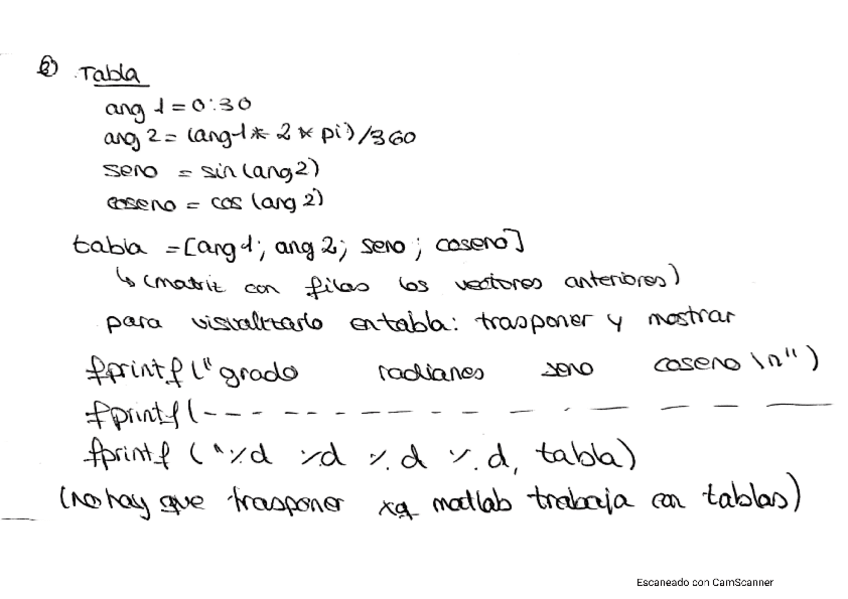 2) Tabla
ang 1 = 0:30
ang 2 = (ang1 * 2 * pi)/360
seno = sin(ang2)
coseno = cos(ang2)
tabla = [ang1; ang2; seno; coseno]
↳ (matriz con filas los vectores anteriores)
para visualizarlo en tabla: trasponer y mostrar
fprintf("grado radianes seno coseno \n")
fprintf(- - - - - - - - - - - - - -
fprintf ("%d %d %d %d, tabla)
(no hay que trasponer xq matlab trabaja con tablas)
Escaneado con CamScanner